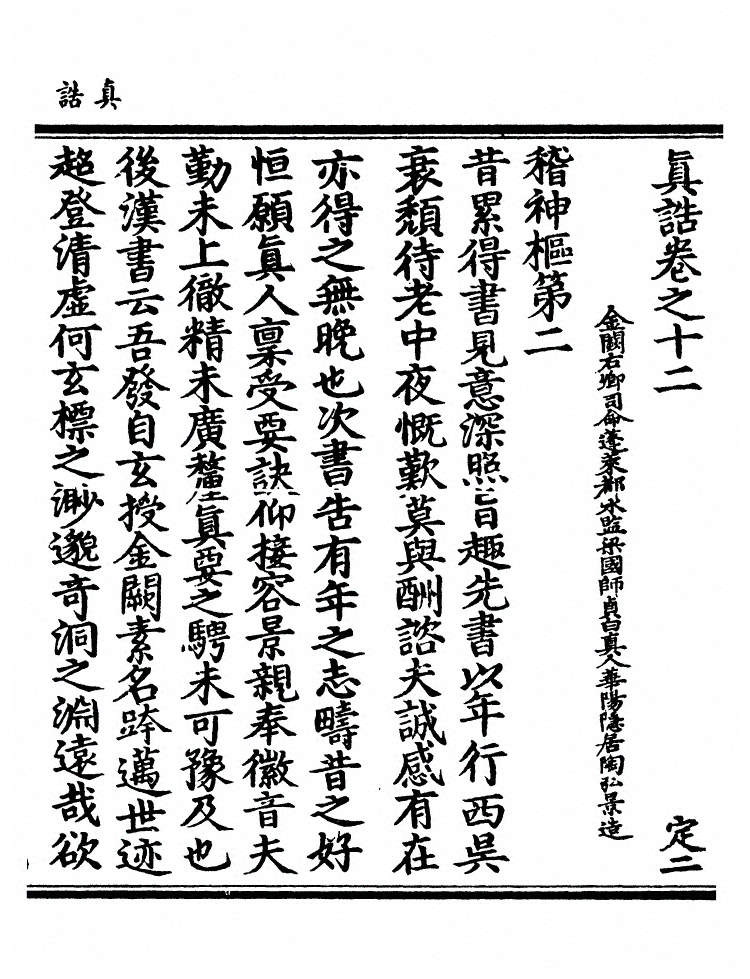 真誥
真誥卷之十二
定二
金闕右卿司命蓬萊都水監梁國師貞白真人華陽隱居陶弘景造
稽神樞第二
昔累得書見意深照旨趣先書以年行西吳
衰頹待老中夜慨歎莫與酬諮夫誠感有在
亦得之無晚也次書告有年之志疇昔之好
恒願真人稟受要訣仰接容景親奉徽音夫
勤未上徹精未廣釐真要之騁未可豫及也
後漢書云吾發自玄授金闕素名跨邁世迹
超登清虛何玄標之渺邈奇洞之淵遠哉欲